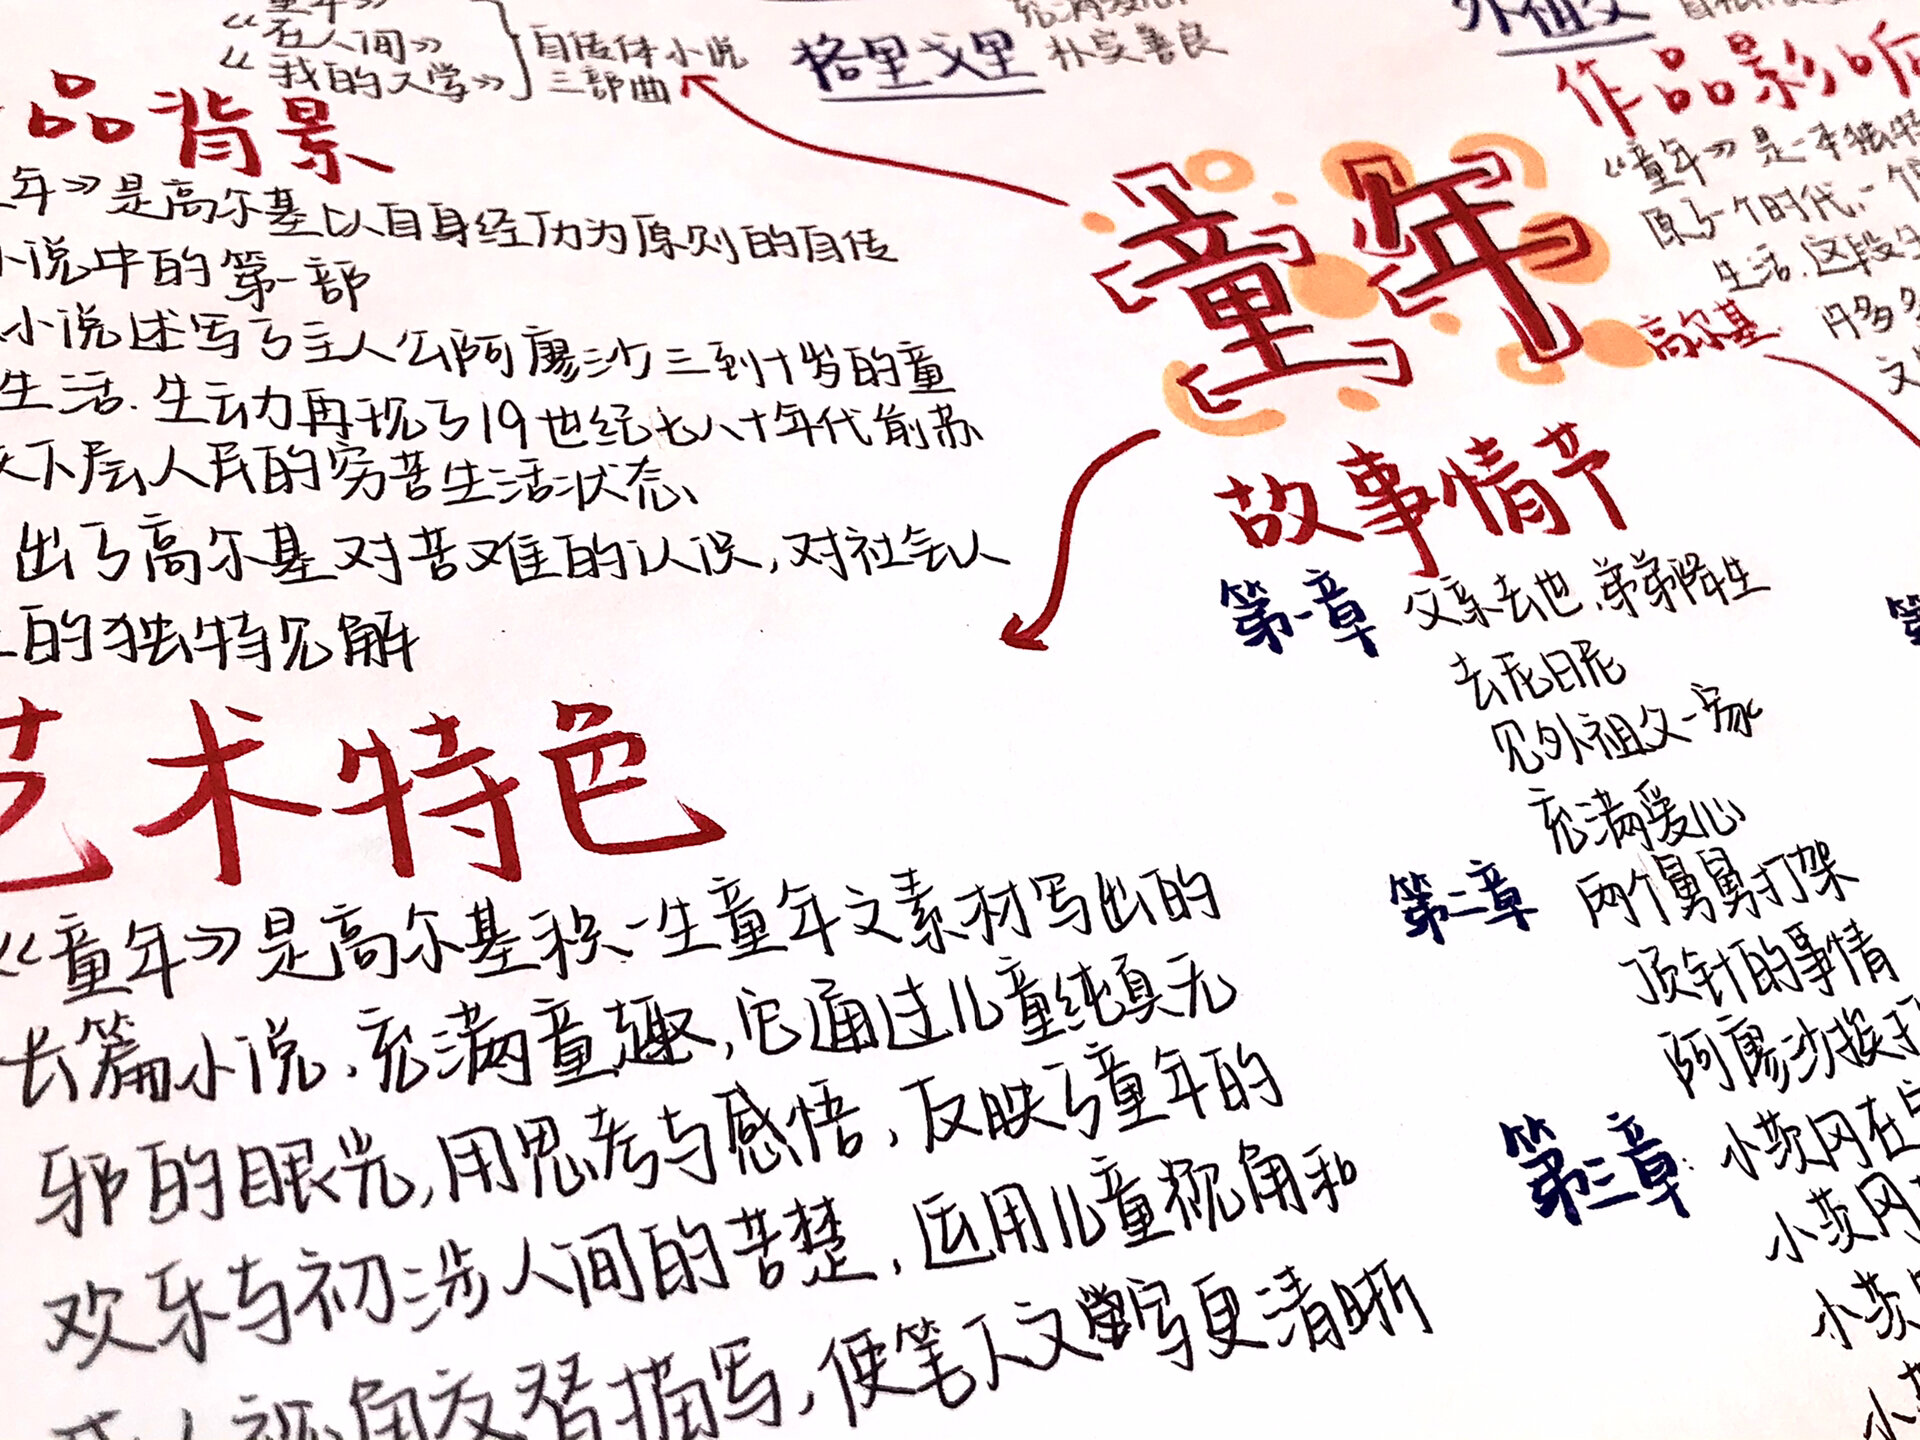 《在人间》
《我的大学》
自传体小说
三部曲
格里戈里
朴实善良
外祖父
品背景
年》是高尔基以自身经历为原则的自传
小说中的第一部
小说述写了主人公阿廖沙三到十岁的童
生活.生动再现了19世纪七八十年代前苏
下层人民的穷苦生活状态、
出了高尔基对苦难的认识,对社会人
的独特见解
童年
高尔基
作品影响
《童年》是一本独特
原了一个时代,一个
生活.这段生
丹多多
文
艺术特色
《童年》是高尔基积一生童年之素材写出的
长篇小说,充满童趣,它通过儿童纯真无
邪的眼光,用思考与感悟,反映了童年的
欢乐与初涉人间的苦楚,运用儿童视角和
成人视角交替描写,使笔下文学写更清晰
故事情节
第一章 父亲去世.弟弟降生
去尼日尼
见外祖父一家
充满爱心
第二章 两个舅舅打架
顶针的事情
阿廖沙挨打
第三章: 小茨冈在
小茨冈
小茨
小茨